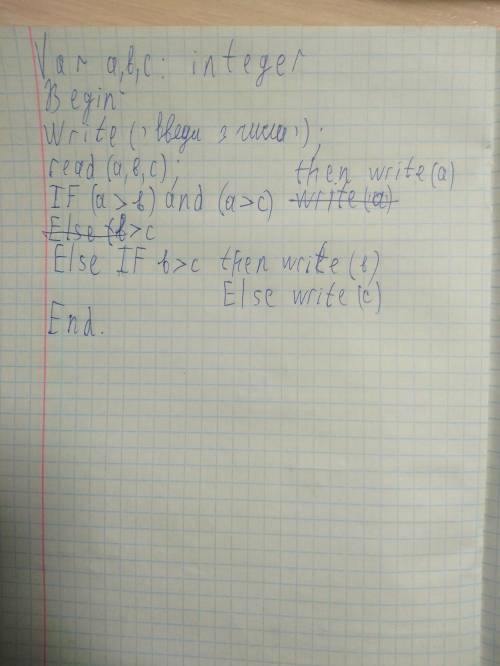 Var a,b,c: integer
Begin
Write ('введи 3 числа');
read (a,b,c);
then write (a)
IF (a>b) and (a>c) write (a)
Else (b>c
Else IF b>c then write (b)
Else write (c)
End.